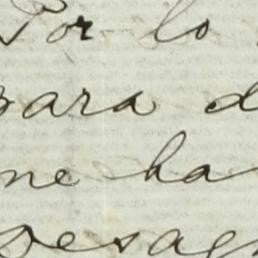 Por lo
para d
me ha
pesag